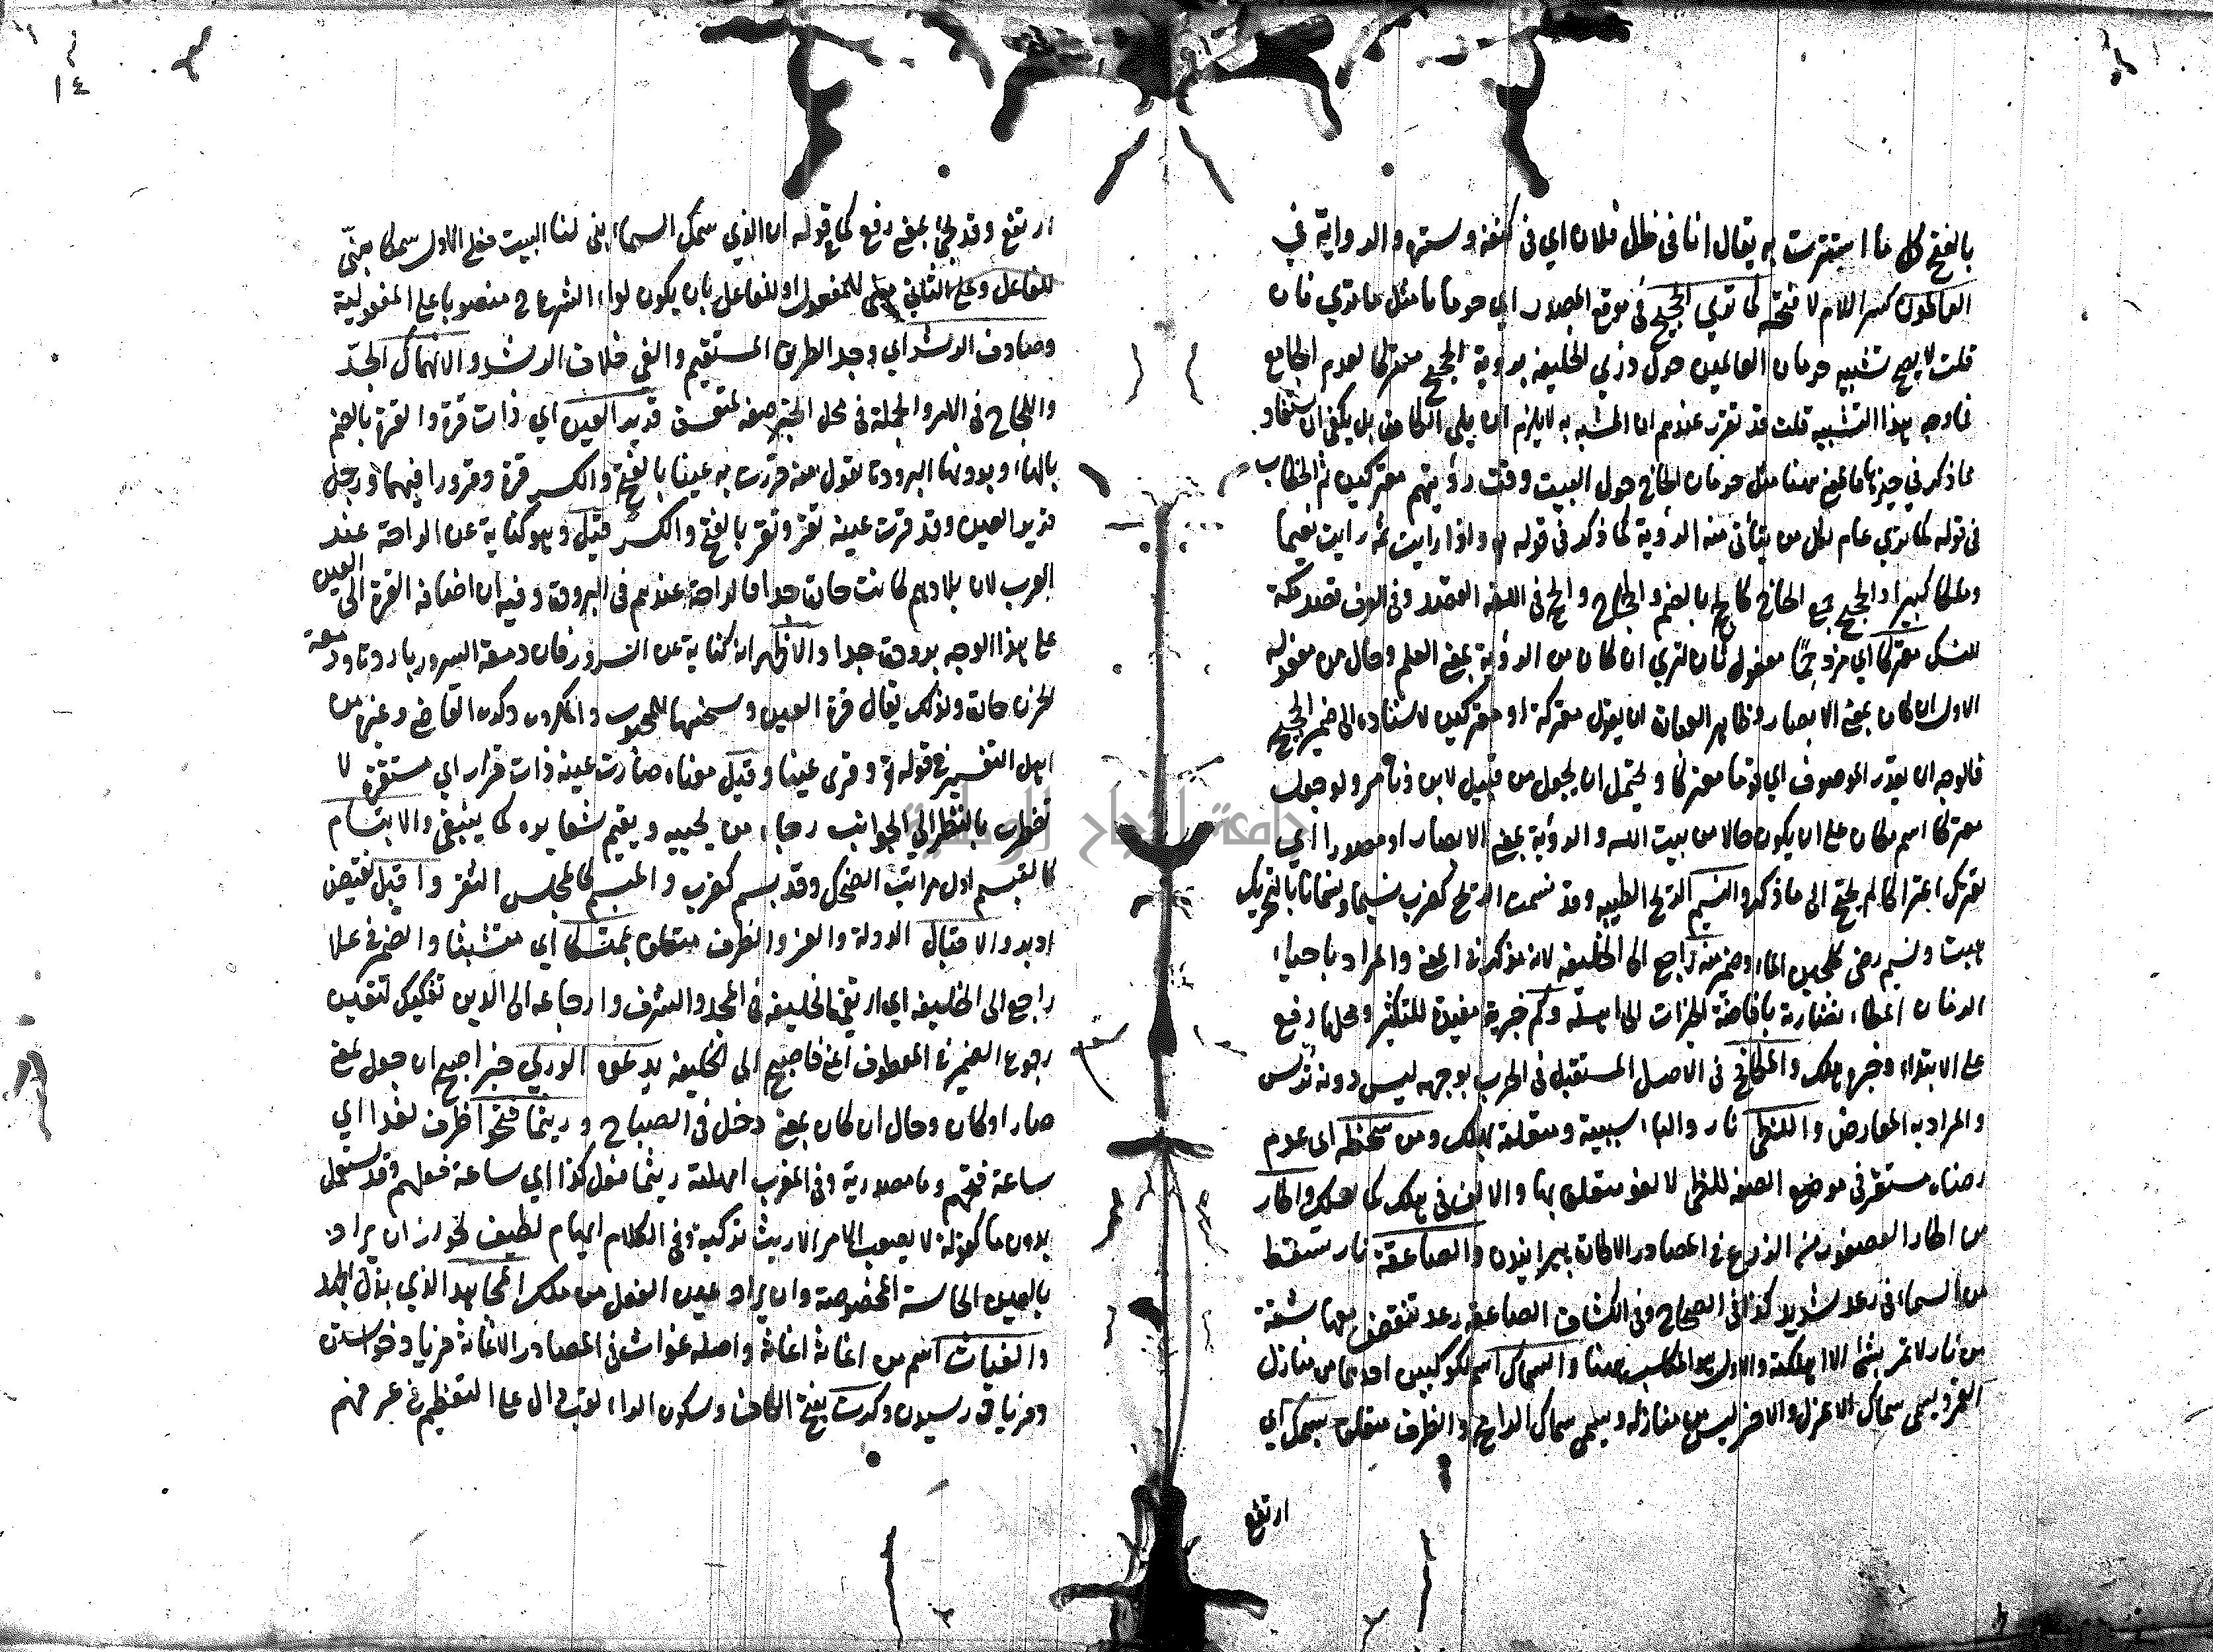 بالفتح كل ما استترت به يقال انا في ظل فلان اي في كنفه وستره والرواية في
العالمون كسر اللام لا فتحه كما ترى الحجيج في موقع المصدر اي حوما مثل ما ترى فان
قلت لا يصح تشبيه حومان العالمين حول ذرى الخليفة برؤية الحجيج معتركا لعدم الجامع
فما وجه هذا التشبيه قلت قد تقرر عندهم ان المشبه به لا يلزم ان يلي الكاف بل يكفي ان يستفاد
مما ذكر في حيزها فالمعنى ههنا مثل حومان الحاج حول البيت وقت رؤيتهم معتركين ثم الخطاب
في قوله كما ترى عام لكل من يتأتى منه الرؤية كما ذكر في قوله واذا رايت ثم رايت نعيما
وملكا كبيرا والحجيج جمع الحاج كالحج بالضم والحجاج والحج في اللغة القصد وفي العرف قصد مكة
للنسك معتركا اي مزدحما مفعول ثان لترى ان كان من الرؤية بمعنى العلم وحال من مفعوله
الاول ان كان بمعنى الابصار وظاهر العبارة ان يقول معتركة او معتركين لاستناده الى ضمير الحجيج
فالوجه ان يقدر الموصوف اي قوما معتركا ويحتمل ان يجعل من قبيل لابن وتامر ولو جعل
معتركا اسم مكان على ان يكون حالا من بيت الله والرؤية بمعنى الابصار او مصدرا اي
يعترك اعتراكا لم يحتج الى ما ذكر والنسيم الريح الطيبة وقد نسمت الريح كضرب نسيما ونسمانا بالتحريك
هبت ونسيم رضى كلجين الماء وضمير منه راجع الى الخليفة لانه مذكور في المعنى والمراد باحياء
الدفان اعطاء نضارته بافاضة الخيرات الى اهله وكم خبرية مفيدة للتكثير ومحلها رفع
على الابتداء وخبره هلك والمكافح في الاصل المستقبل في الحرب بوجهه ليس دونه ترس
والمراد به المعارض واللظى نار والباء سببية ومتعلقة بهلك ومن سخطه اي عدم
رضاه مستقر في موضع الصفة للظى لا لغو متعلق بها والالف في هلك كما
من السماء في رعد شديد كذا في الصحاح وفي الكشاف الصاعقة رعد تنقض معها شقة
من نار لا تمر بشئ الا اهلكته والاول هو المناسب ههنا والسماك اسم لكوكبين احدهما من منازل
القمر ويسمى سماك الاعزل والاخر ليس من منازله ويسمى سماك الرامح والظرف متعلق بسمك اي
ارتفع
١٤
ارتفع وقد يجئ بمعنى رفع كما في قوله ان الذي سمك السماء بنى لنا البيت فعلى الاول سمكا مبنى
للفاعل وعلى الثاني مبنى للمفعول او للفاعل بان يكون لواء الشرع منصوبا على المفعولية
وصادف الرشد اي وجد الطريق المستقيم والغي خلاف الرشد والانهماك الجد
واللجاج في الامر والجملة في محل الجر صفة لمعتسف قرير العين اي ذات قرة والقرة بالضم
بالهاء وبدونها البرودة تقول منه قررت به عينا بالفتح والكسر قرة وقرورا فيهما ورجل
قرير العين وقد قرت عينه تقر وتقر بالفتح والكسر قيل وهو كناية عن الراحة عند
العرب لان بلادهم كانت حارة جدا فالراحة عندهم في البرودة وفيه ان اضافة القرة الى العين
على هذا الوجه بارد جدا والاظهر انه كناية عن السرور فان دمعة السرور باردة ودمعة
الحزن حارة ولذلك يقال قرة العين وسخنها للمحبوب والمكروه ذكره القاضي وغيره من
اهل التفسير في قوله وقرى عينا وقيل معناه صارت عينه ذات قرار اي مستقرة لا
تضطرب بالنظر الى الجوانب رجاء من يحييه ويقيم شعايره كما ينبغي والابتسام
كالتبسم اول مراتب الضحك وقد بسم كضرب والمبسم كالمجلس الثغر واقبل نقيض
ادبر والاقبال الدولة والعز والظرف متعلق بممتسكا اي متشبثا والضمير في علا
راجع الى الخليفة اي ارتقى الخليفة في المجد والشرف وارجاعه الى الدين تفكيك لتعين
رجوع الضمير في المعطوف اعني فاصبح الى الخليفة يدعو الورى خبر اصبح ان جعل بمعنى
صار او كان وحال ان كان بمعنى دخل في الصباح وريثما فتحوا ظرف لغدا اي
ساعة فتحهم وما مصدرية وفي المغرب امهلته ريثما فعل كذا اي ساعة فعلهم وقد يستعمل
بدون ما كقوله لا يصعب الامر الا ريث تركبه وفي الكلام ايهام لطيف لجواز ان يراد
بالعين الحاسة المخصوصة وان يراد عين الفعل من ملك المجاهد الذي بذل الجهد
والغياث اسم من اغاثه اغاثة واصله غواث في المصادر الاغاثة فرياد خواستن
وفرياد رسيدن وكرت بفتح الكاف وسكون الراء لقب دال على التعظيم في عرفهم